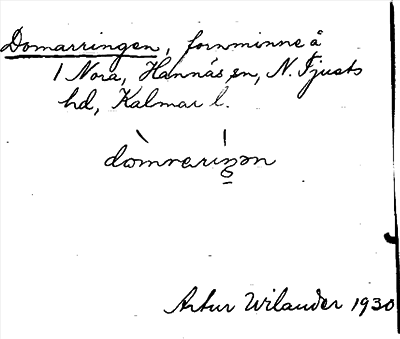 Domarringen, fornminne å
1 Nora, Hannäs sn, N. Tjusts
hd, Kalmar l.
Artur Wilander 1930